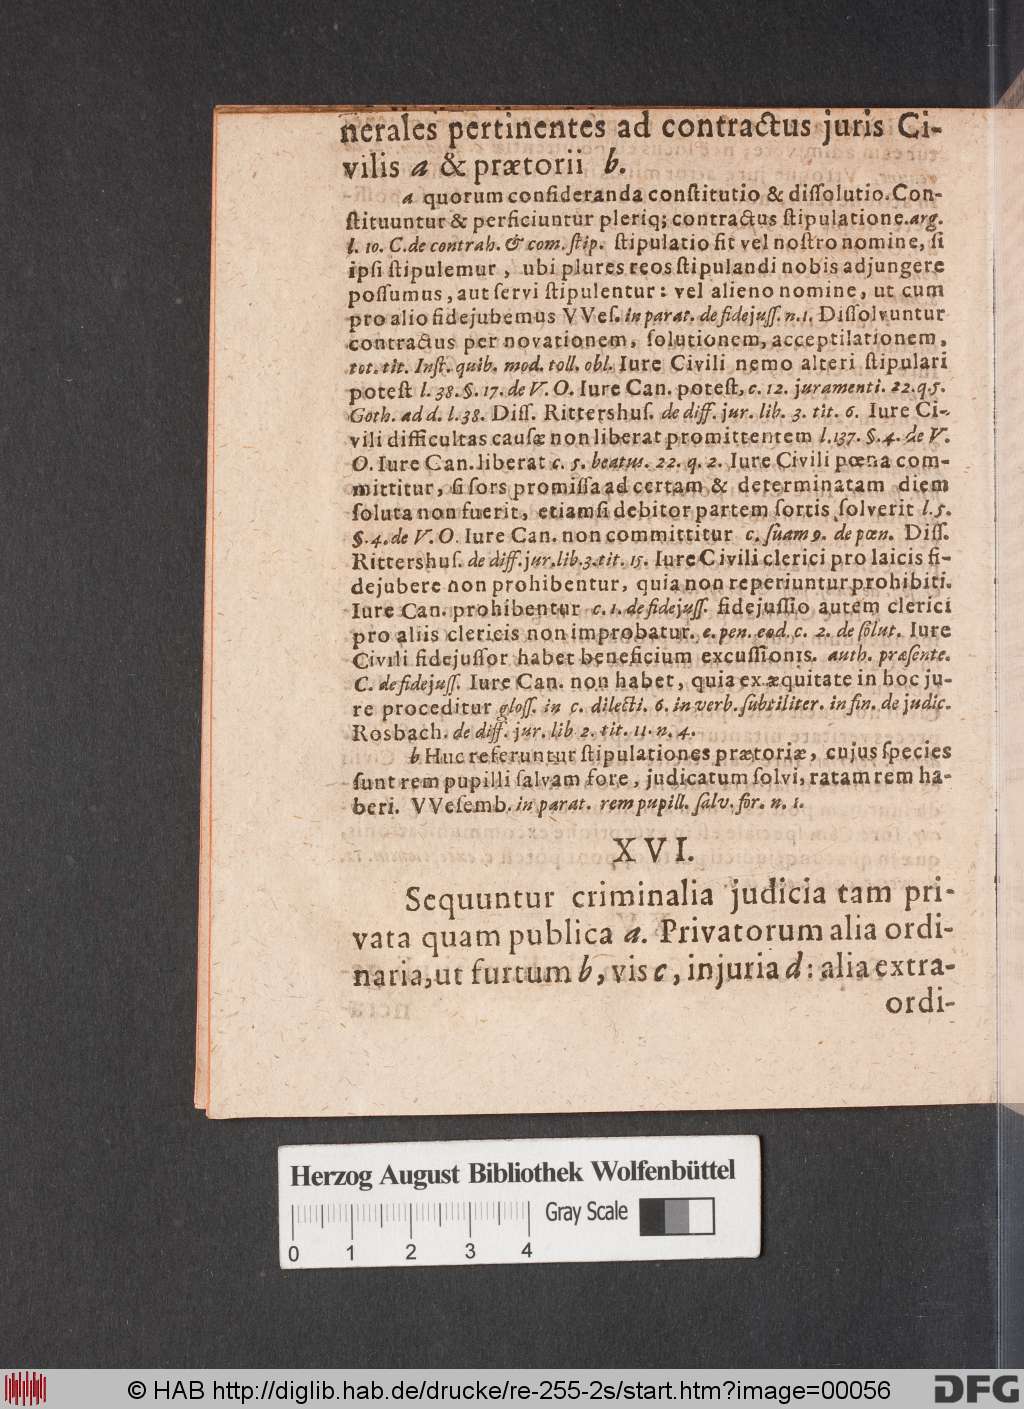 nerales pertinentes ad contractus juris Ci-
vilis a & prætorii b.
a quorum consideranda constitutio & dissolutio. Con-
stituuntur & perficiuntur pleriq; contractus stipulatione. arg.
l. 10. C. de contrah. & com. stip. stipulatio fit vel nostro nomine, si
ipsi stipulemur, ubi plures reos stipulandi nobis adjungere
possumus, aut servi stipulentur: vel alieno nomine, ut cum
pro alio fidejubemus VVes. in parat. de fidejuss. n. 1. Dissolvuntur
contractus per novationem, solutionem, acceptilationem,
tot. tit. Inst. quib. mod. toll. obl. Iure Civili nemo alteri stipulari
potest l. 38. §. 17. de V. O. Iure Can. potest, c. 12. juramenti. 22. q. 5.
Goth. ad d. l. 38. Diss. Rittershus. de diff. jur. lib. 3. tit. 6. Iure Ci-
vili difficultas causæ non liberat promittentem l. 137. §. 4. de V.
O. Iure Can. liberat c. 5. beatus. 22. q. 2. Iure Civili pœna com-
mittitur, si sors promissa ad certam & determinatam diem
soluta non fuerit, etiamsi debitor partem sortis solverit l. 5.
§. 4. de V. O. Iure Can. non committitur c. suam 9. de pœn. Diss.
Rittershus. de diff. jur. lib. 3. tit. 15. Iure Civili clerici pro laicis fi-
dejubere non prohibentur, quia non reperiuntur prohibiti.
Iure Can. prohibentur c. 1. de fidejuss. fidejussio autem clerici
pro aliis clericis non improbatur. e. pen. eod. c. 2. de solut. Iure
Civili fidejussor habet beneficium excussionis. auth. præsente.
C. de fidejuss. Iure Can. non habet, quia ex æquitate in hoc ju-
re proceditur gloss. in c. dilecti. 6. in verb. subtiliter. in fin. de judic.
Rosbach. de diff. jur. lib 2. tit. 11. n. 4.
b Huc referuntur stipulationes prætoriæ, cujus species
sunt rem pupilli salvam fore, judicatum solvi, ratam rem ha-
beri. VVesemb. in parat. rem pupill. salv. for. n. 1.
XVI.
Sequuntur criminalia judicia tam pri-
vata quam publica a. Privatorum alia ordi-
naria, ut furtum b, vis c, injuria d: alia extra-
ordi-
Herzog August Bibliothek Wolfenbüttel
Gray Scale
0 1 2 3 4
© HAB http://diglib.hab.de/drucke/re-255-2s/start.htm?image=00056
DFG